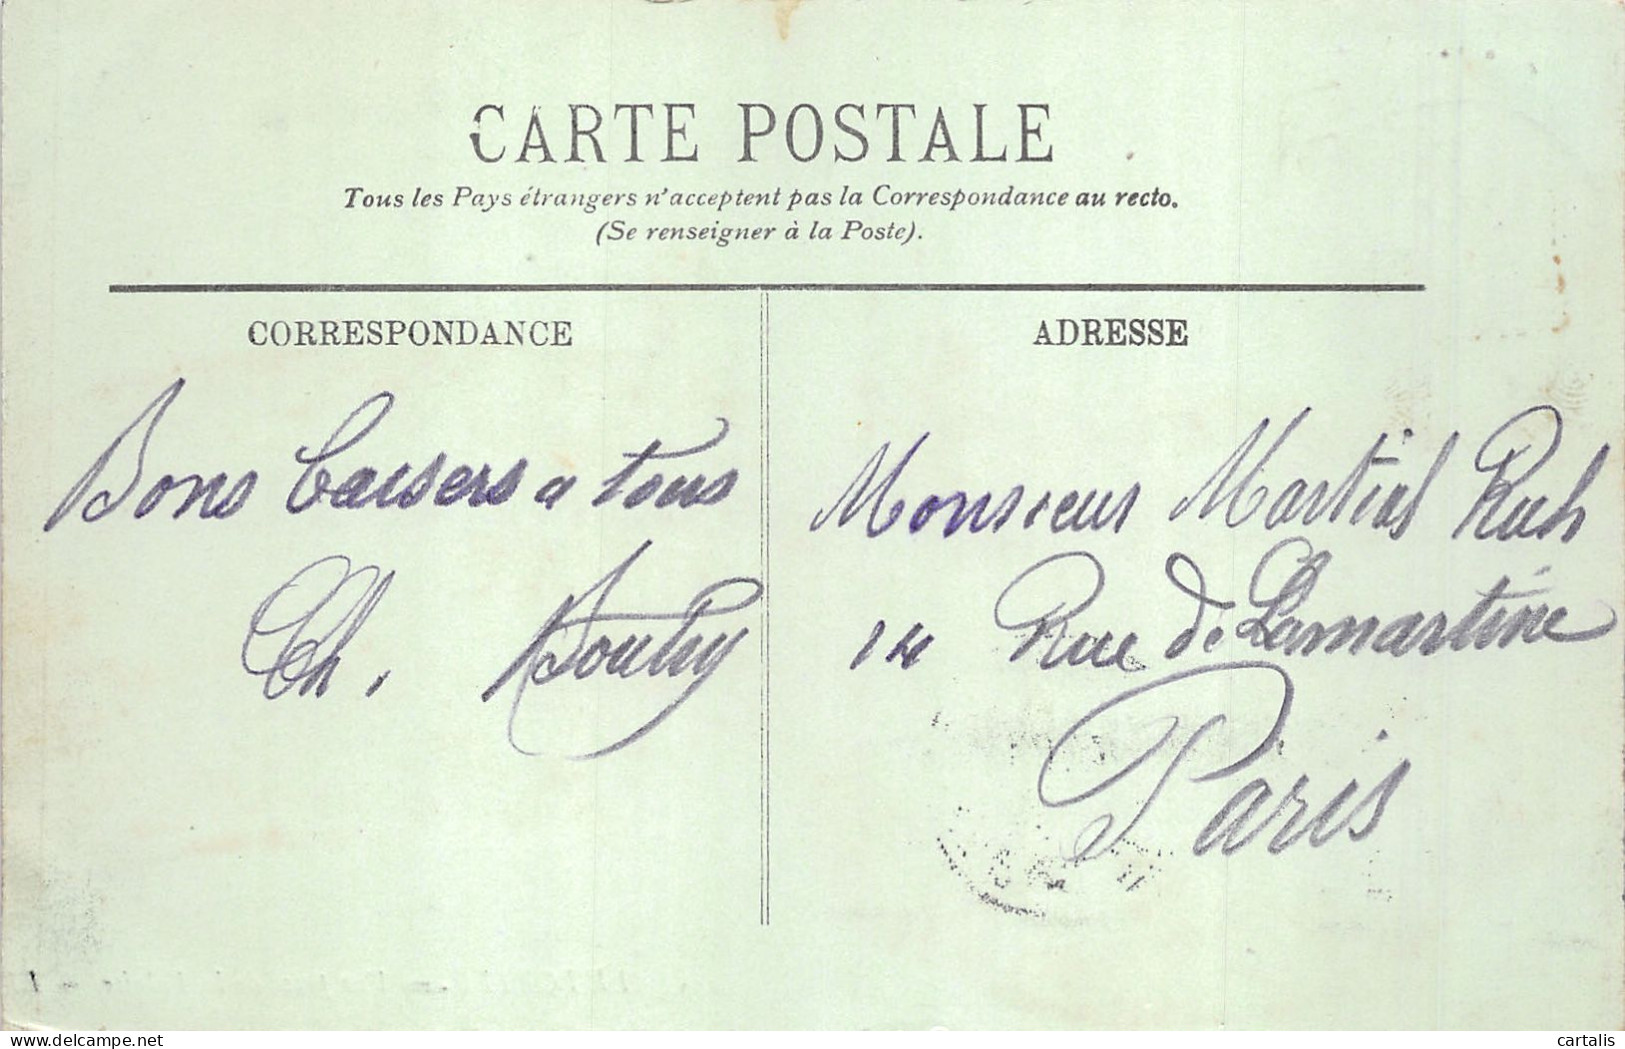 CARTE POSTALE
Tous les Pays étrangers n'acceptent pas la Correspondance au recto.
(Se renseigner à la Poste).
CORRESPONDANCE
Bons baisers a tous
Ch.
ADRESSE
Monsieur Martial
14 Rue de Lamartine
Paris
cartalis